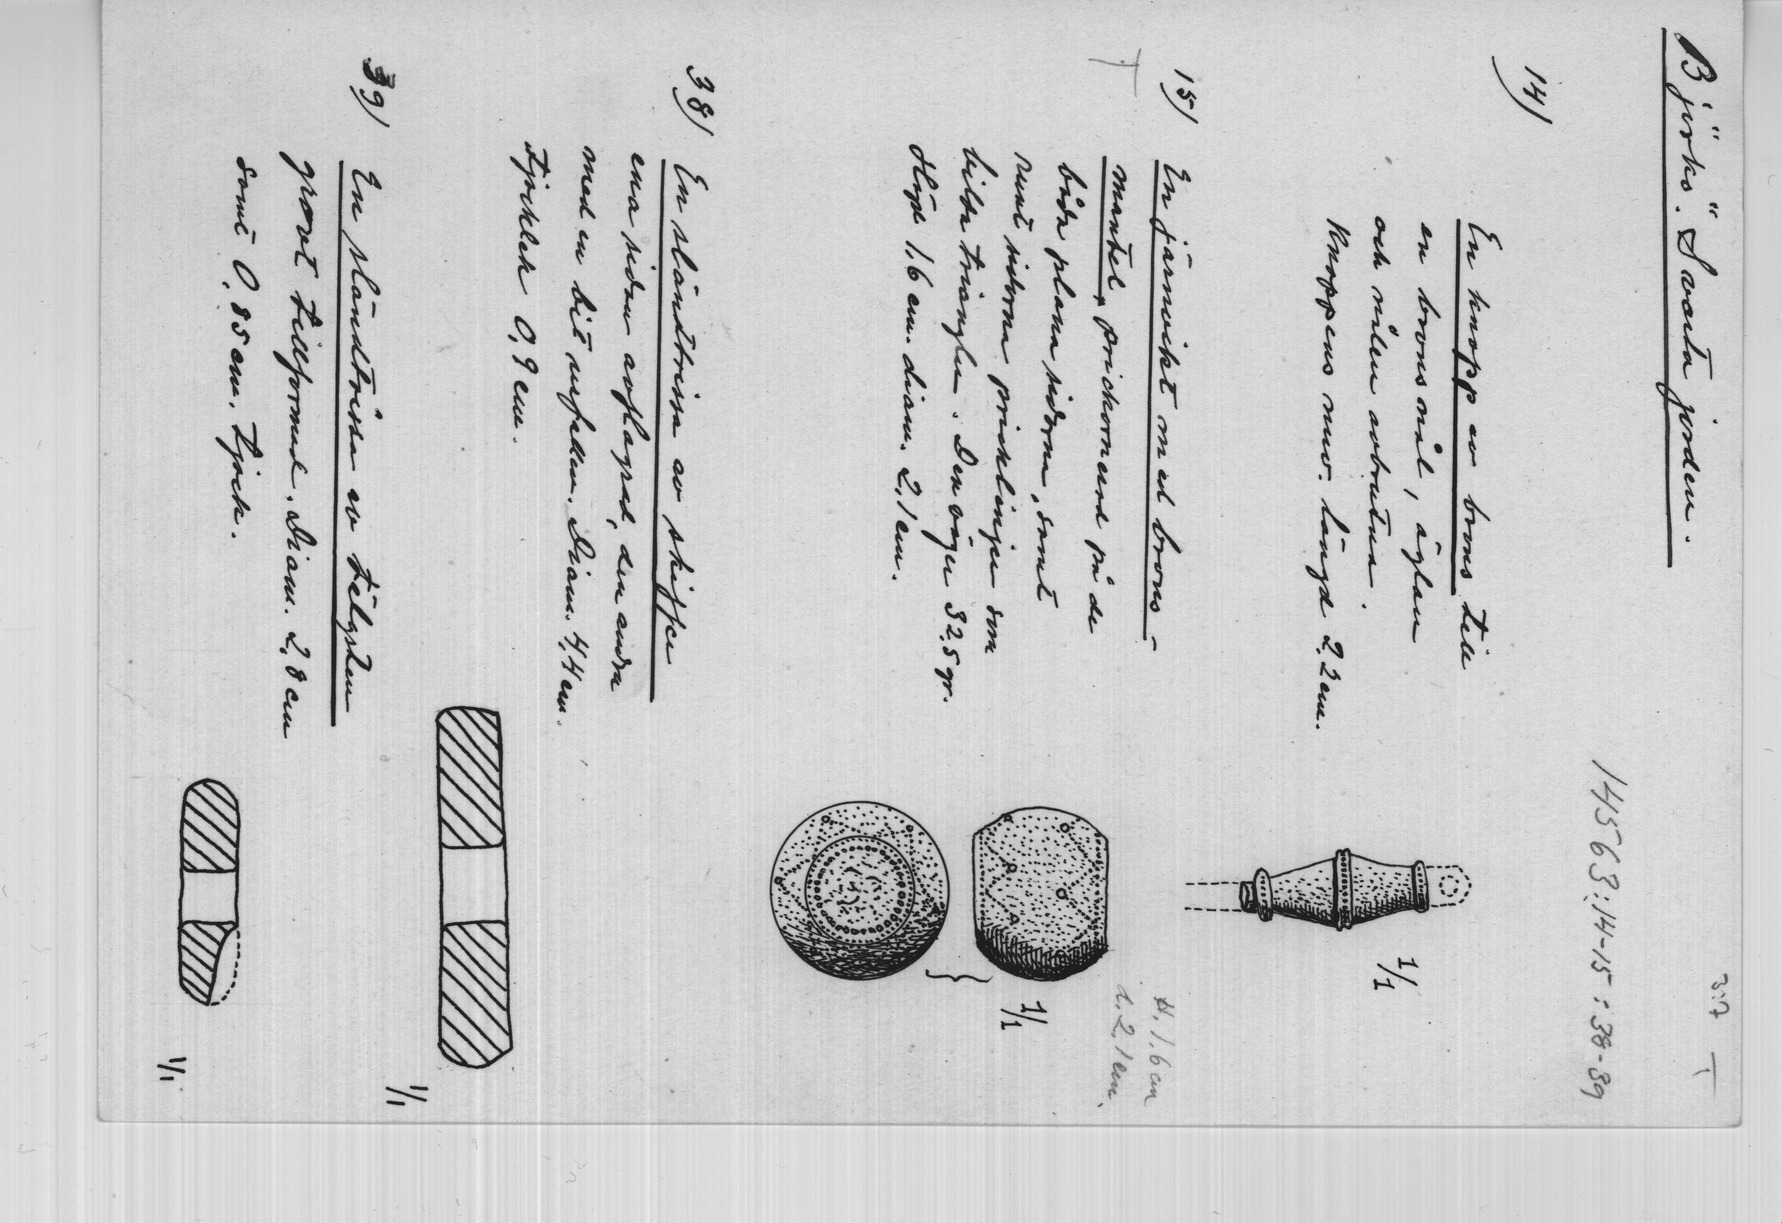 Björkö. Svarta jorden.
3:7
14563:14-15:38-39
14)
En knapp av brons till
en bronsnål, öglan
och nålen avbrutna.
Knoppens nuv. längd 2,2 cm.
1/1
15)
En järnvikt med brons-
mantel, prickornerad på de
båda plana sidorna, samt
runt sidorna pricklinjer som
bilda trianglar. Den väger 32,5 gr.
Höjd 1,6 cm. diam. 2,1 cm.
H. 1,6 cm
d. 2,1 cm.
1/1
38)
En sländtrissa av skiffer
ena sidan avflagrad, den andra
med en bit urfallen. Diam. 4,4 cm.
tjocklek 0,9 cm.
1/1
39)
En sländtrissa av täljsten
grovt tillformad. Diam. 2,8 cm
samt 0,85 cm. tjock.
1/1